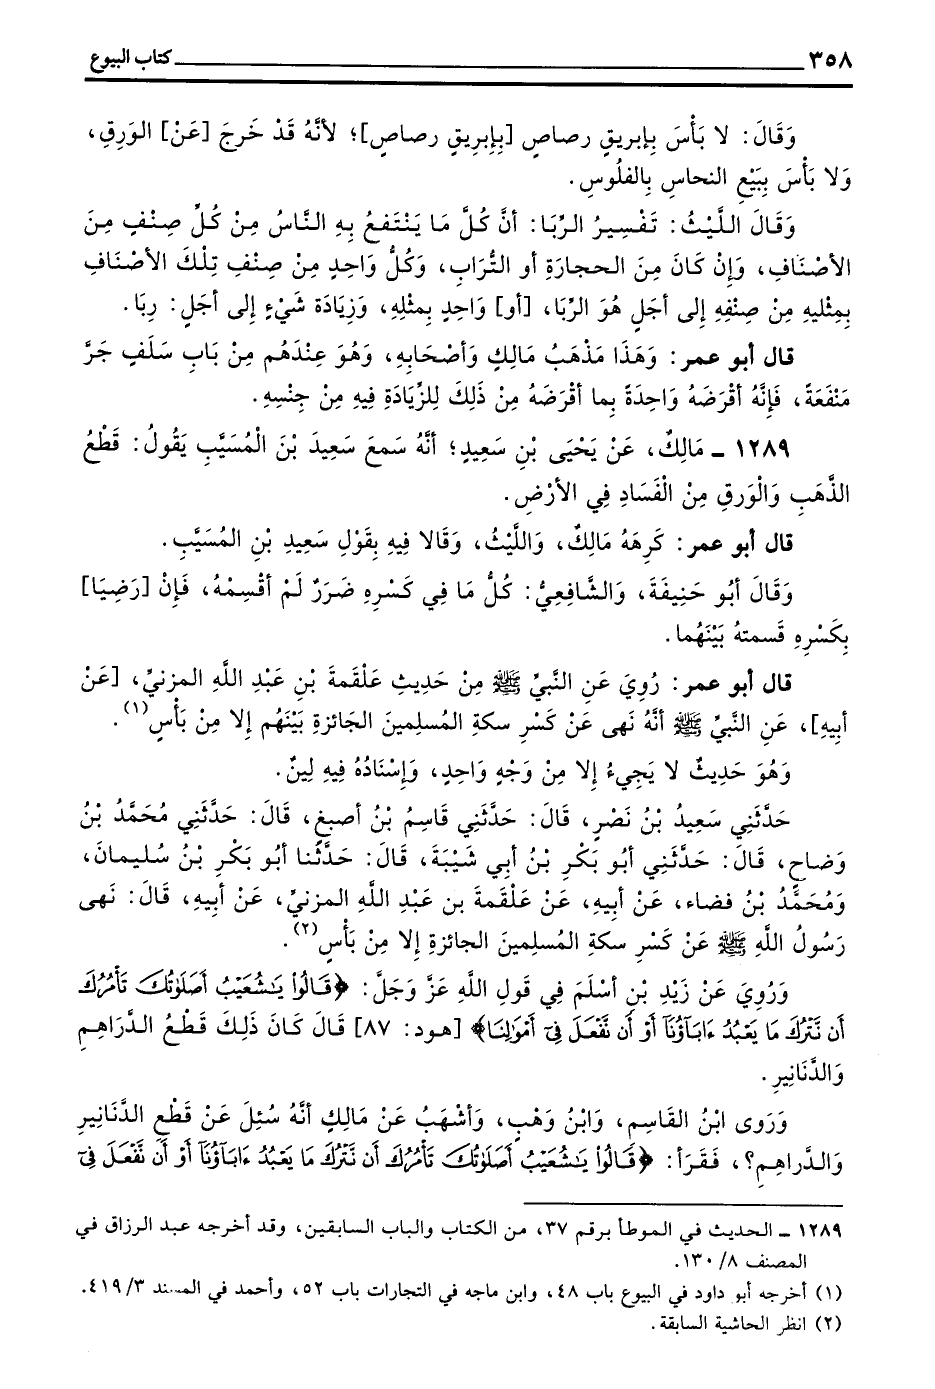 ٣٥٨ كتاب البيوع
وَقَالَ: لا بَأْسَ بِإبريقٍ رصاصٍ [بِإبرِيقٍ رصاصٍ]؛ لأنَّهُ قَدْ خَرجَ [عَنْ] الوَرِقِ،
وَلا بأسَ بِبَيْعِ النحاسِ بِالفلُوسِ.
وَقَالَ اللَّيْثُ: تَفْسِيرُ الرِّبَا: أنَّ كُلَّ مَا يَنْتَفعُ بِهِ النَّاسُ مِنْ كُلِّ صِنْفٍ مِنَ
الأصْنَافِ، وَإِنْ كَانَ مِنَ الحجارَةِ أو التُّرَابِ، وَكُلُّ وَاحِدٍ مِنْ صِنْفِ تِلْكَ الأصْنَافِ
بِمِثْلَيهِ مِنْ صِنْفِهِ إلى أجَلٍ هُوَ الرِّبَا، [أو] وَاحِدٍ بِمثْلِهِ، وَزِيَادَة شَيْءٍ إلى أجَلٍ: رِبَا.
قال أبو عمر: وَهَذَا مَذْهَبُ مَالِكٍ وَأصْحَابِهِ، وَهُوَ عِنْدَهُم مِنْ بَابِ سَلَفٍ جَرَّ
مَنْفَعَةً، فَإِنَّهُ أقْرَضَهُ وَاحِدَةً بِما أقْرَضَهُ مِنْ ذَلِكَ لِلزِّيَادَةِ فِيهِ مِنْ جِنْسِهِ.
١٢٨٩ ـ مَالِكٌ، عَنْ يَحْيَى بْنِ سَعِيدٍ؛ أنَّهُ سَمعَ سَعِيدَ بْنَ الْمُسَيَّبِ يَقُولُ: قَطْعُ
الذَّهَبِ وَالْوَرِقِ مِنْ الْفَسَادِ فِي الأرْضِ.
قال أبو عمر: كَرِهَهُ مَالِكٌ، وَاللَّيْثُ، وَقَالا فِيهِ بِقَوْلِ سَعِيدِ بْنِ المُسَيَّبِ.
وَقَالَ أبُو حَنِيفَةَ، وَالشَّافِعِيُّ: كُلُّ مَا فِي كَسْرِهِ ضَرَرٌ لَمْ أقْسِمْهُ، فَإِنْ [رَضِيَا]
بِكَسْرِهِ قَسمتهُ بَيْنَهُما.
قال أبو عمر: رُوِيَ عَنِ النَّبِيِّ ﷺ مِنْ حَدِيثِ عَلْقَمةَ بْنِ عَبْدِ اللَّهِ المزنيِّ، [عَنْ
أبِيهِ]، عَنِ النَّبِيِّ ﷺ أنَّهُ نَهى عَنْ كَسْرِ سكةِ المُسلمِينَ الجَائزةِ بَيْنَهُم إلا مِنْ بَأْسٍ(١).
وَهُوَ حَدِيثٌ لا يَجِيءُ إلا مِنْ وَجْهٍ وَاحِدٍ، وَإِسْنَادُهُ فِيهِ لِينٌ.
حَدَّثَنِي سَعِيدُ بْنُ نَصْرٍ، قَالَ: حَدَّثَنِي قَاسِمُ بْنُ أصبغٍ، قَالَ: حَدَّثَنِي مُحَمَّدُ بْنُ
وَضاحٍ، قَالَ: حَدَّثَنِي أبُو بَكْرِ بْنُ أبي شَيْبَةَ، قَالَ: حَدَّثَنا أبُو بَكْرِ بْنُ سُليمانَ،
وَمُحَمَّدُ بْنُ فضاء، عَنْ أبِيهِ، عَنْ عَلْقمةَ بن عَبْدِ اللَّهِ المزنيِّ، عَنْ أبِيهِ، قَالَ: نَهى
رَسُولُ اللَّهِ ﷺ عَنْ كَسْرِ سكةِ المُسلمِينَ الجائزةِ إلا مِنْ بَأْسٍ(٢).
وَرُوِيَ عَنْ زَيْدِ بْنِ أسْلَمَ فِي قَولِ اللَّهِ عَزَّ وَجَلَّ: ﴿قَالُوا۟ يَـٰشُعَيْبُ أَصَلَوٰتُكَ تَأْمُرُكَ
أَن نَّتْرُكَ مَا يَعْبُدُ ءَابَآؤُنَآ أَوْ أَن نَّفْعَلَ فِىٓ أَمْوَٰلِنَا﴾ [هود: ٨٧] قَالَ كَانَ ذَلِكَ قَطْعُ الدَّرَاهِمِ
وَالدَّنَانِيرِ.
وَرَوى ابْنُ القَاسِمِ، وَابْنُ وَهْبٍ، وَأشْهَبُ عَنْ مَالِكٍ أنَّهُ سُئِلَ عَنْ قَطْعِ الدَّنَانِيرِ
وَالدراهِمِ؟، فَقَرأ: ﴿قَالُوا۟ يَـٰشُعَيْبُ أَصَلَوٰتُكَ تَأْمُرُكَ أَن نَّتْرُكَ مَا يَعْبُدُ ءَابَآؤُنَآ أَوْ أَن نَّفْعَلَ فِىٓ
١٢٨٩ ـ الحديث في الموطأ برقم ٣٧، من الكتاب والباب السابقين، وقد أخرجه عبد الرزاق في
المصنف ٨/ ١٣٠.
(١) أخرجه أبو داود في البيوع باب ٤٨، وابن ماجه في التجارات باب ٥٢، وأحمد في المسند ٣/ ٤١٩.
(٢) انظر الحاشية السابقة.